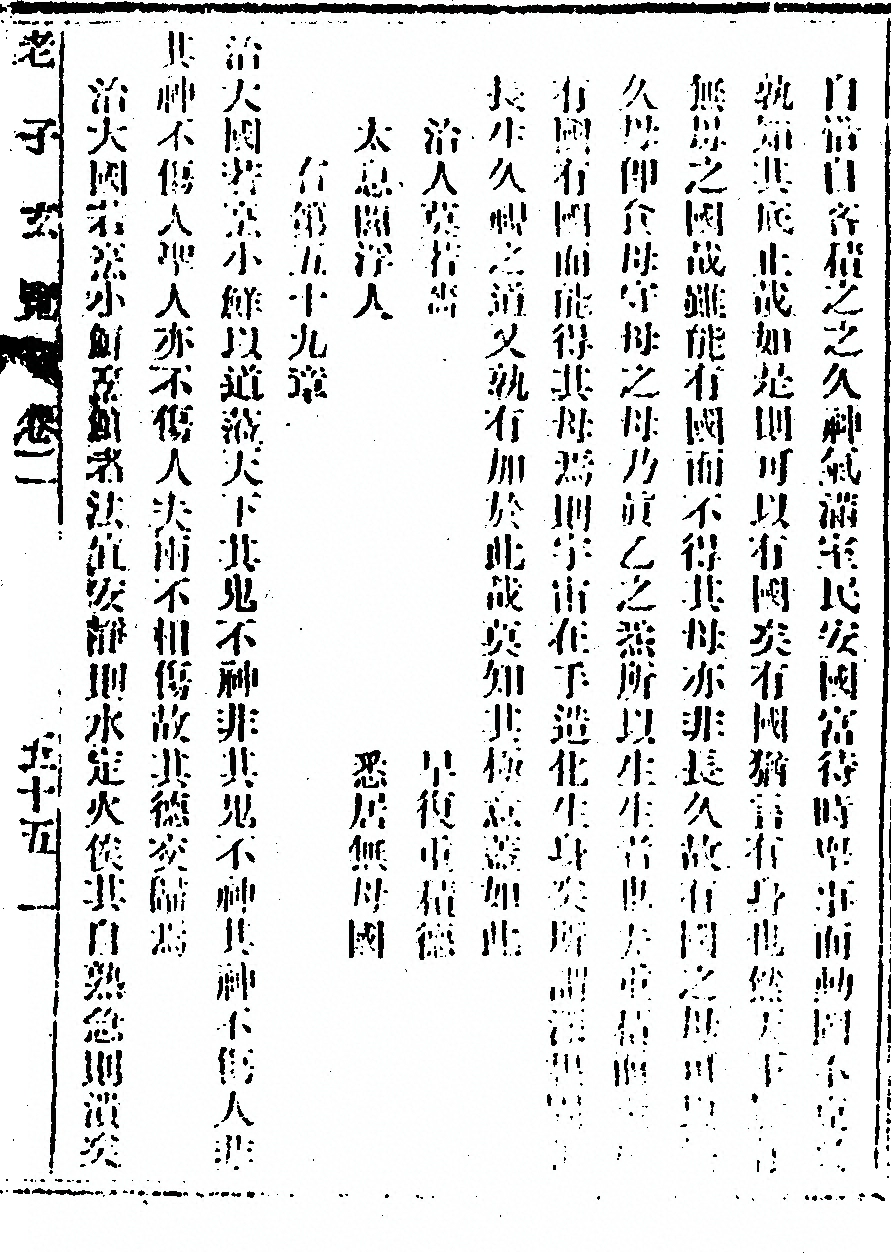 自俗自客積之之久神氣滿室民安國富待時舉事而動罔不克
孰知其底止哉如是則可以有國矣有國猶言有身也然天下
無母之國哉雖能有國而不得其母亦非長久故有國之母可以
久母卽食母守母之母乃眞乙之炁所以生生者也夫重積
有國有國而能得其母焉則宇宙在手造化生身矣所謂深根
長生久視之道又孰有加於此哉莫知其極意蓋如此
治人莫若嗇　早復重積德
太息閻浮人　悉居無母國
右第五十九章
治大國若烹小鮮以道莅天下其鬼不神非其鬼不神其神不傷人非
其神不傷人聖人亦不傷人夫兩不相傷故其德交歸焉
治大國若烹小鮮烹鮮者法宜安靜則水定火俟其自熟急則潰矣
老子玄覽　卷二　五十五